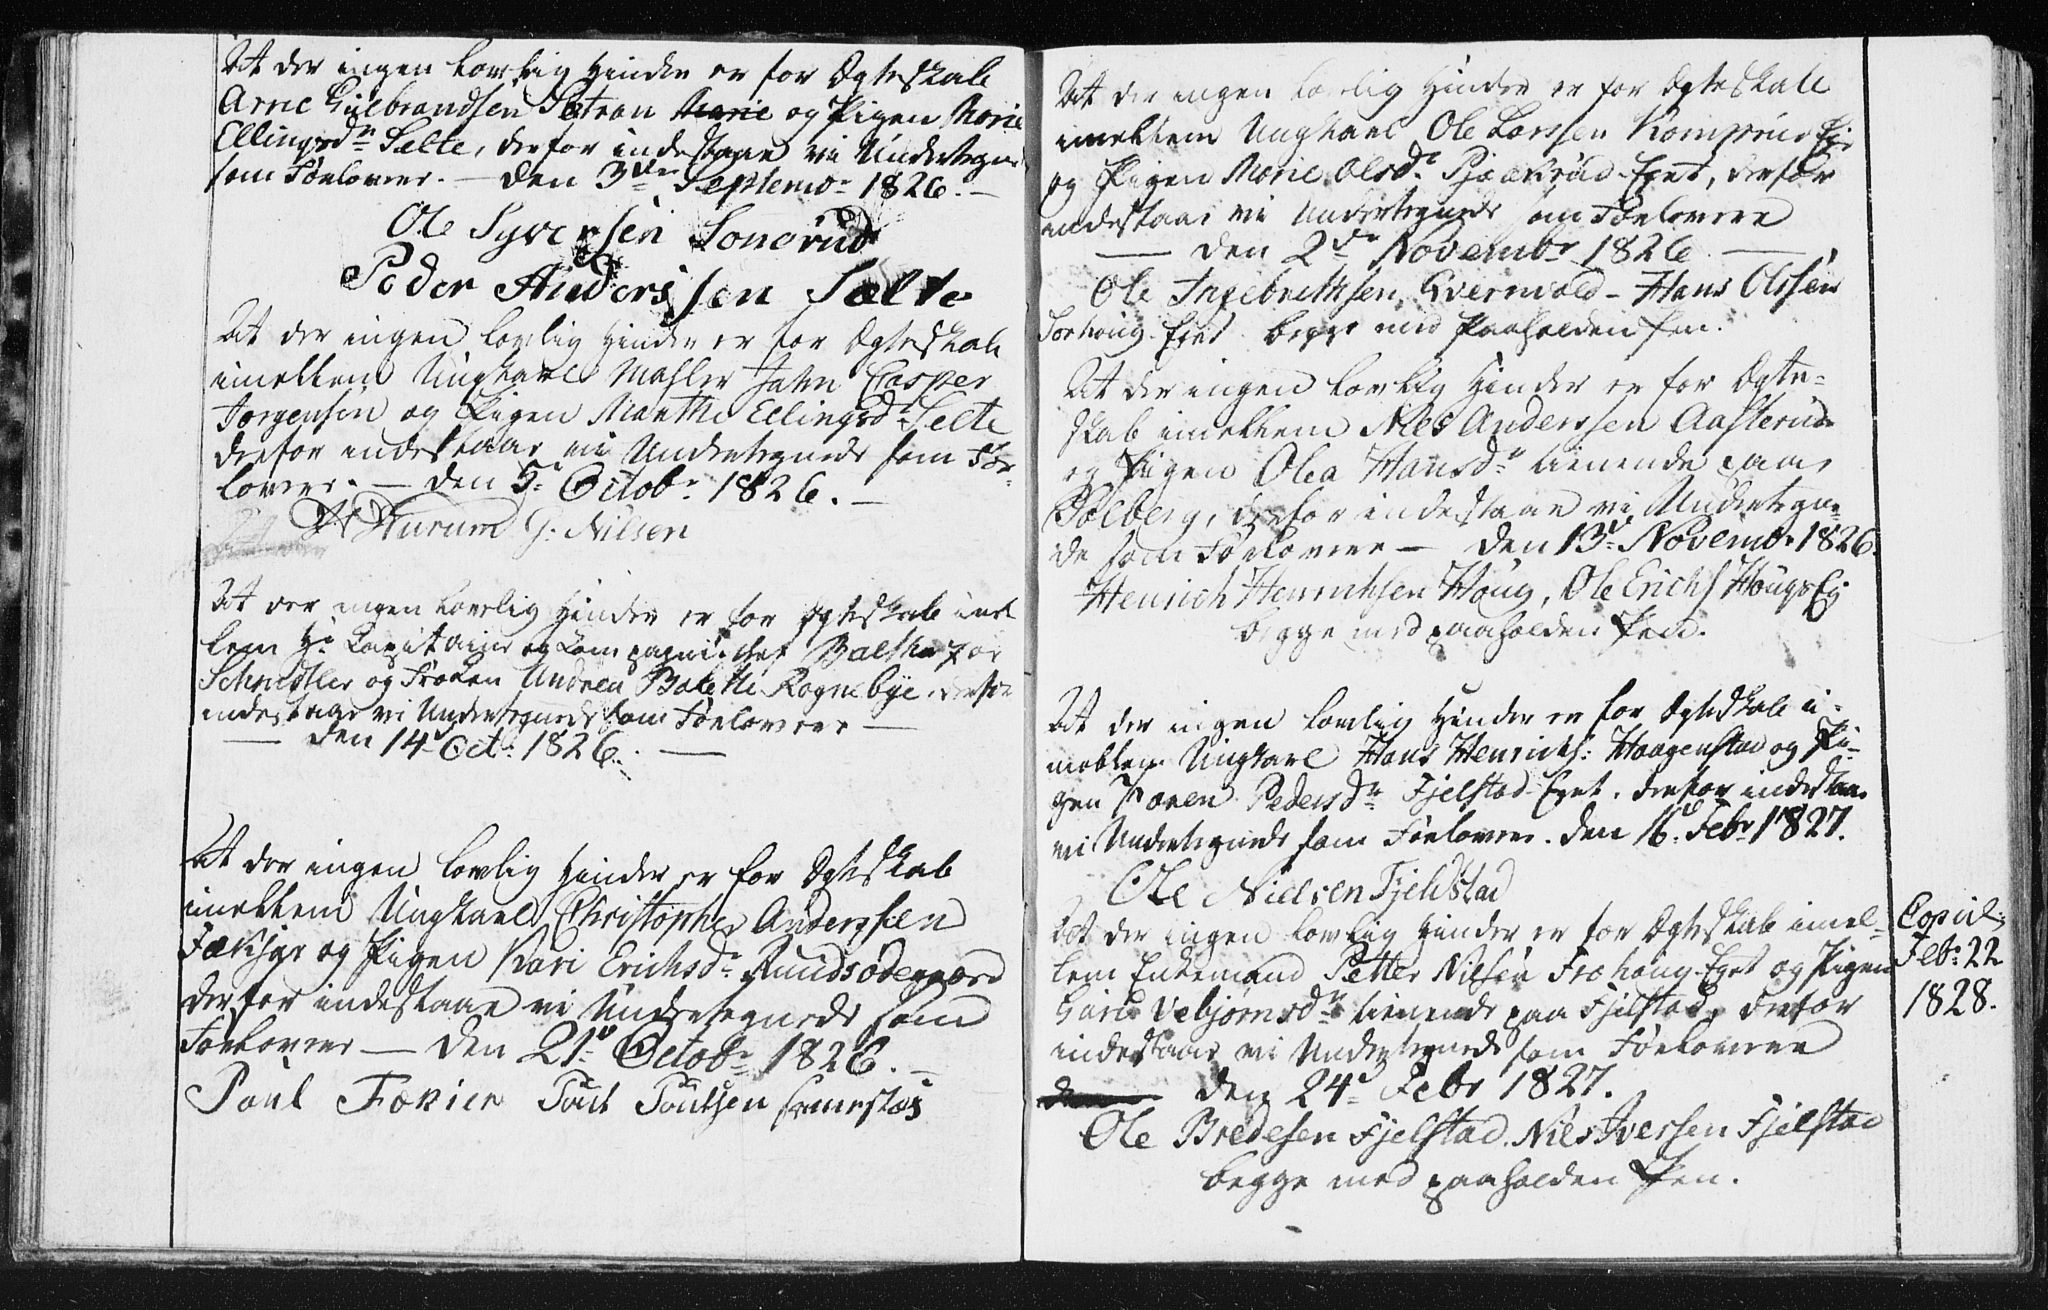 At der ingen lovlig Hinder er for Ægteskab
Arne Gulbrandsen Setran Marie og Pigen Marie
Ellingsdr Selte, derfor indestaae vi Undertegnede
som Forlovere. — den 3die Septembr 1826. —
Ole Syversen Sonerud
Peder Anderssen Sælte
At der ingen lovlig Hinder er for Ægteskab
imellem Ungkarl Mahler John Casper
Jorgensen og Pigen Marthe Ellingsdr Selte
derfor indestaae vi Undertegnede som For-
lovere. — den 5t October 1826. —
H Hurum G: Nilsen
At der ingen lovlig Hinder er for Ægteskab imel
lem Hr Capitaine og Compagnichef Balthazar
Schnitler og Frøken Andrea Bolette Rognebye derfor
indestaae vi Undertegnede som Forlovere —
— den 14d Oct: 1826. —
At der ingen lovlig Hinder er for Ægteskab
imellem Ungkarl Christopher Anderssen
og Pigen Kari Erichsdr Ruudsødegaard
derfor indestaae vi Undertegnede som
Forlovere — den 21d Octobr 1826. —
Poul Poul Poulsen
At der ingen lovlig Hinder er for Ægteskab
imellem Ungkarl Ole Larssen Komperud Eje
og Pigen Marie Olsdr Eyet, derfor
indestaae vi Undertegnede som Forlovere
— den 2den Novembr 1826 —
Ole Ingebrethsen Qvernvold – Hans Olssen
Eyet begge med paaholden Pen.
At der ingen lovlig Hinder er for Ægte-
skab imellem Niels Anderssen Aasterud
og Pigen Olea Hansdr tienende paa
Solberg, derfor indestaae vi Undertegne-
de som Forlovere — den 13d Novembr 1826.
Henrich Henrichsen Houg, Ole Erichs Hougs Ej
begge med paaholden Pen.
At der ingen lovlig Hinder er for Ægteskab i-
mellem Ungkarl Hans Henrichs: Haagenstad og Pi-
gen Karen Pedersdr Fjelstad Eyet, derfor indestaae
vi Undertegnede som Forlovere. den 16d Febr 1827.
Ole Nielsen Fjeldstad
At der ingen lovlig Hinder er for Ægteskab imel-
lem Enkemand Petter Nilsen Frohoug Eyet og Pigen
Guri Vebjørnsdr tienende paa Fjelstad, derfor
indestaae vi Undertegnede som Forlovere
den 24d Febr 1827.
Ole Bredesen Fjelstad. Niels Iversen Fjelstad
begge med paaholden Pen.
Copul:
Feb: 22
1828.